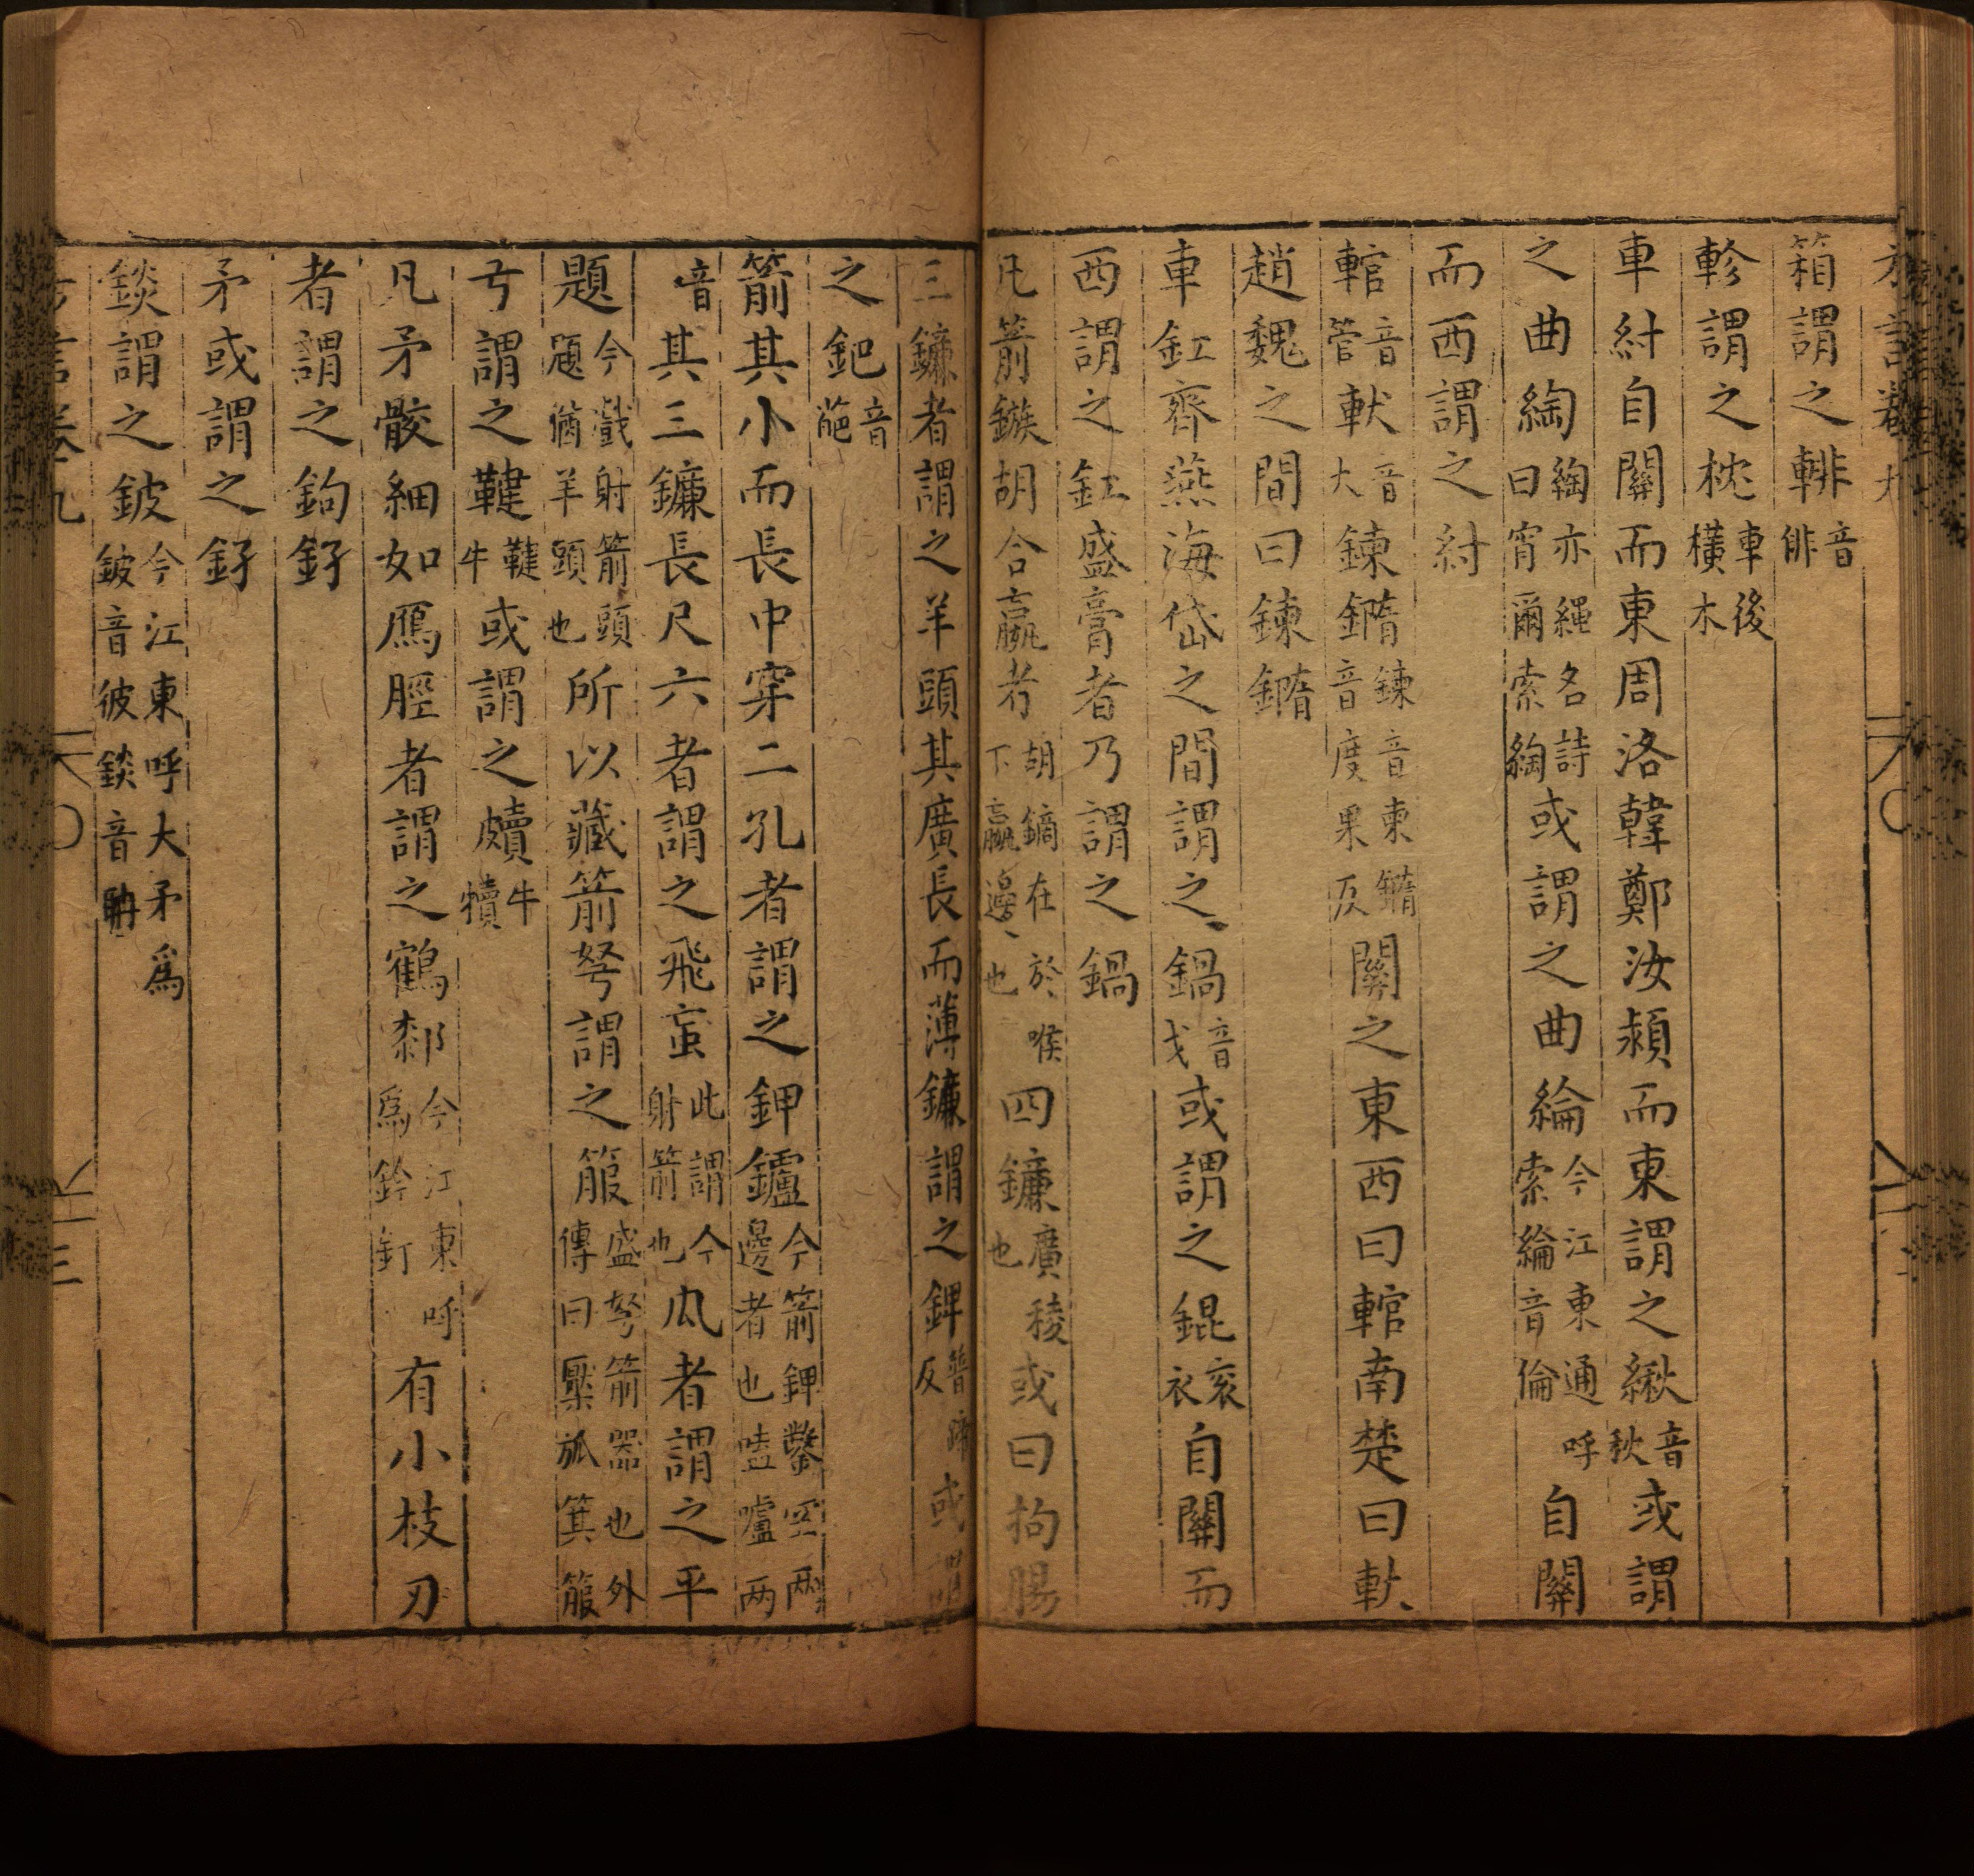 箱謂之輫音俳
軫謂之枕車後橫木
車紂自關而東周洛韓鄭汝潁而東謂之緧音秋或謂
之曲綯綯亦繩名詩曰宵爾索綯或謂之曲綸今江東通呼索綸音倫自關
而西謂之紂
輨音管軑音大鍊鐫鍊音柬鐫音度果反關之東西曰輨南楚曰軑
趙魏之間曰鍊鐫
車釭齊燕海岱之間謂之鍋音戈或謂之錕衮衣自關而
西謂之釭盛膏者乃謂之鍋
凡箭鏃胡合嬴者胡鏑在於喉下嬴邊也四鐮廣稜也或曰拘腸
三鐮者謂之羊頭其廣長而薄鐮謂之錍普蹄反或謂
之鈀音葩
箭其小而長中穿二孔者謂之鉀鑪今箭鉀鑿空兩邊者也嗑嚧兩
音其三鐮長尺六者謂之飛䖟此謂今射箭也瓜者謂之平
題今戲射箭頭題猶羊頭也所以藏箭弩謂之箙盛弩箭器也外傳曰檿弧箕箙
弓謂之鞬鞬牛或謂之皾牛犢
凡矛骹細如鴈脛者謂之鶴䣛今江東呼爲鈴釘有小枝刃
者謂之鉤釨
矛或謂之釨
錟謂之鈹今江東呼大矛爲鈹音彼錟音聃
方言卷九
三